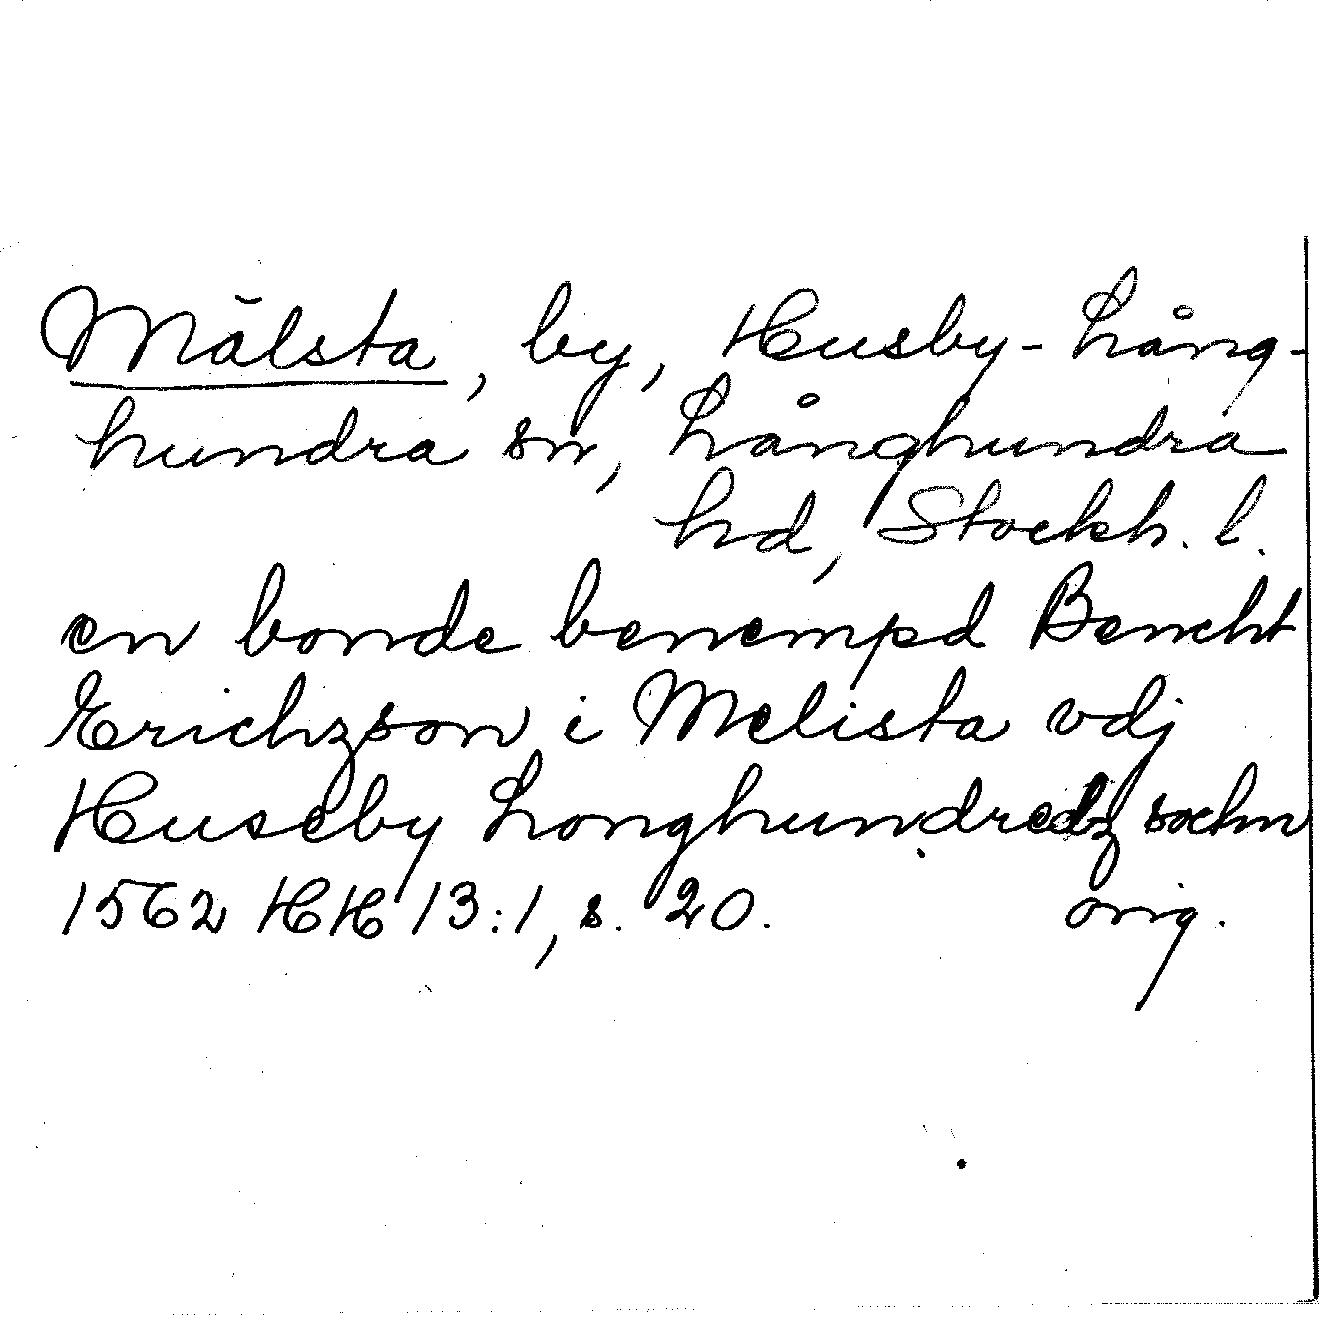 Mälsta, by, Husby-Lång-
hundra sn, Långhundra
hd, Stockh. l.
en bonde benempd Bencht
Erichzson i Melista vdj
Huseby Longhundredz sochn
1562 HH 13:1, s. 20. orig.